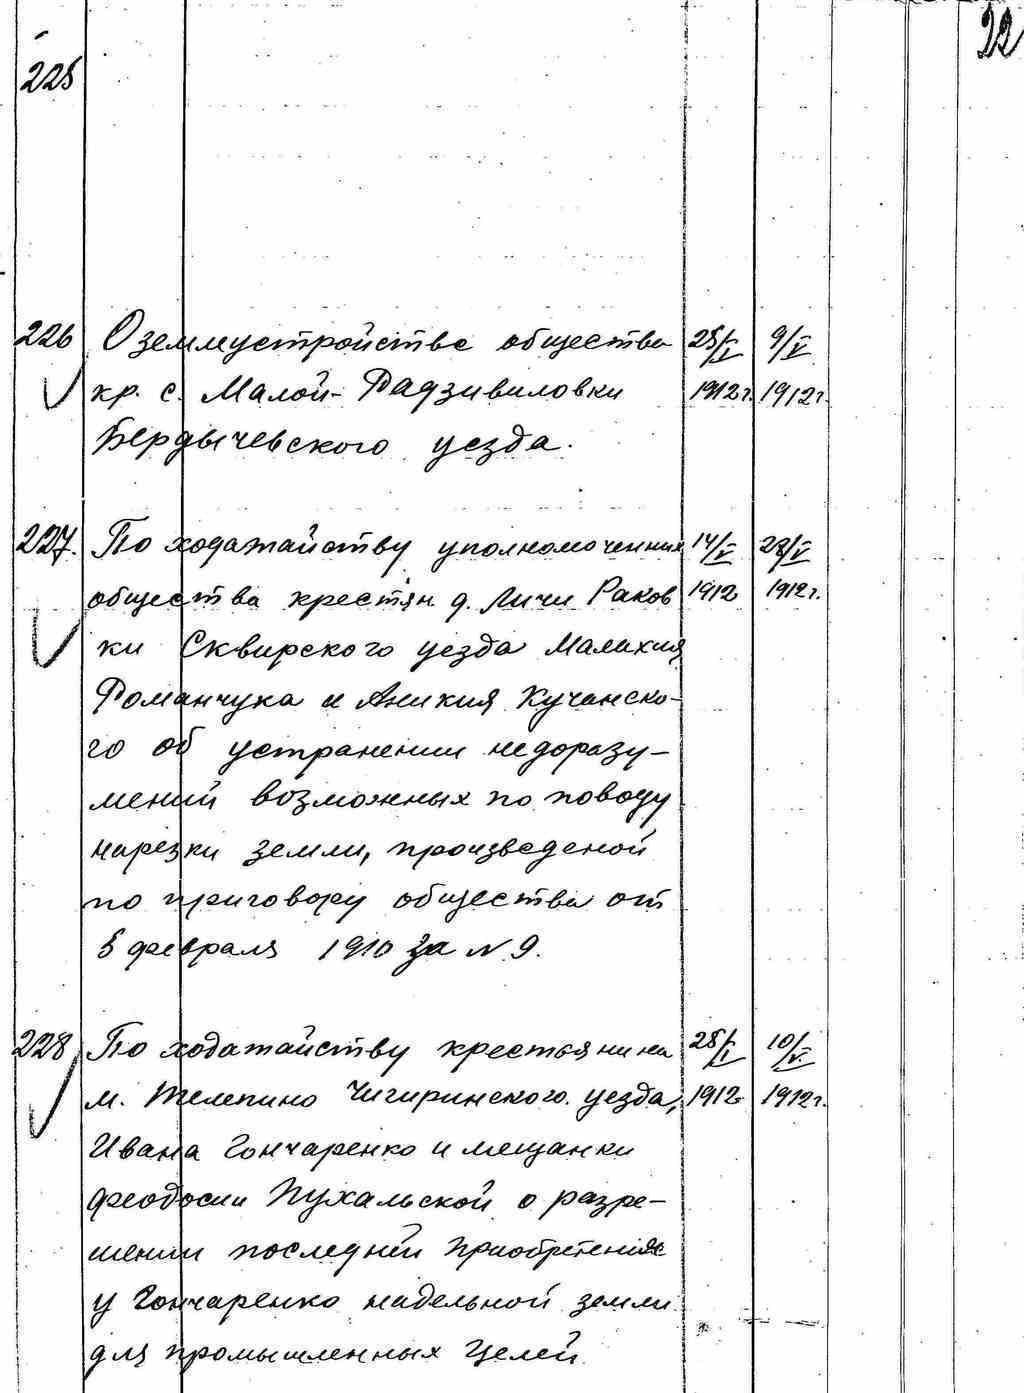 22
225
226 О землеустройстве общества 25/IV 9/V
кр. с. Малой-Радзивиловки 1912г. 1912г.
Бердычевского уезда.
227. По ходатайству уполномоченных 14/V 28/V
общества крестян д. Личи Раков 1912 1912г.
ки Сквирского уезда Малахия
Романчука и Аникия Кучанско-
го об устранении недоразу-
мений возможных по поводу
нарезки земли, произведеной
по приговору общества от
5 февраля 1910 за N 9.
228 По ходатайству крестьянина 25/I 10/V.
м. Телепино Чигиринского уезда, 1912 1912г.
Ивана Гончаренко и мещанки
Феодосии Пухальской о разре-
шении последней приобретения
у Гончаренко надельной земли
для промышленных целей